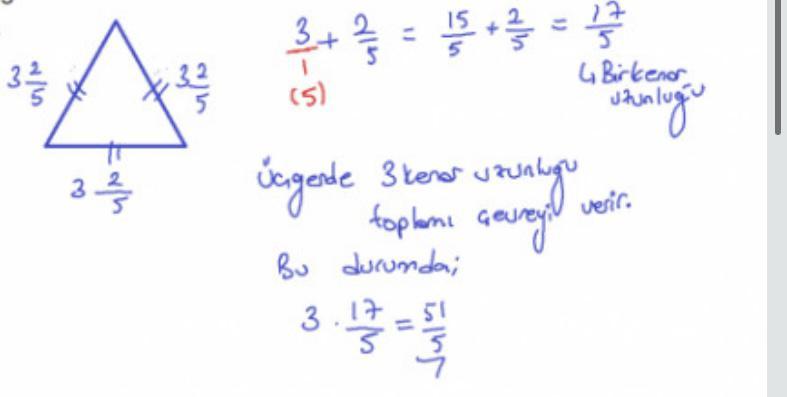 3 2/5
3 2/5
3 2/5
3/1 + 2/5 = 15/5 + 2/5 = 17/5
(5)
↳ Bir kenar
uzunluğu
Üçgende 3 kenar uzunluğu
toplamı çevreyi verir.
Bu durumda;
3 · 17/5 = 51/5